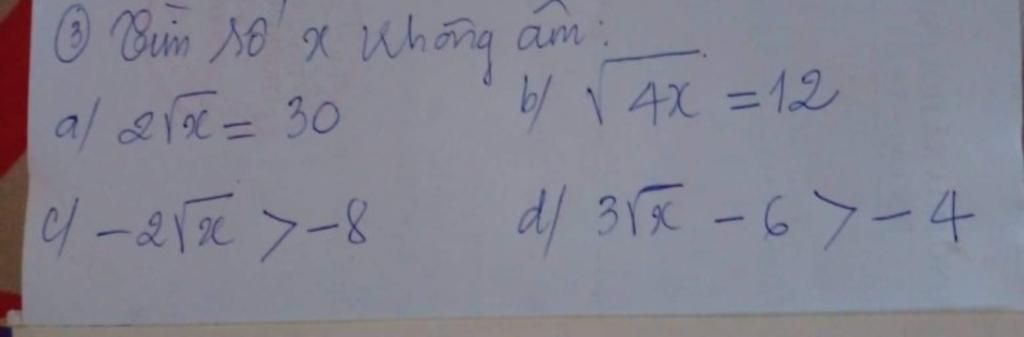 ③ Tìm số x không âm:
a/ 2√x = 30 b/ √4x = 12
c/ -2√x > -8 d/ 3√x - 6 > - 4